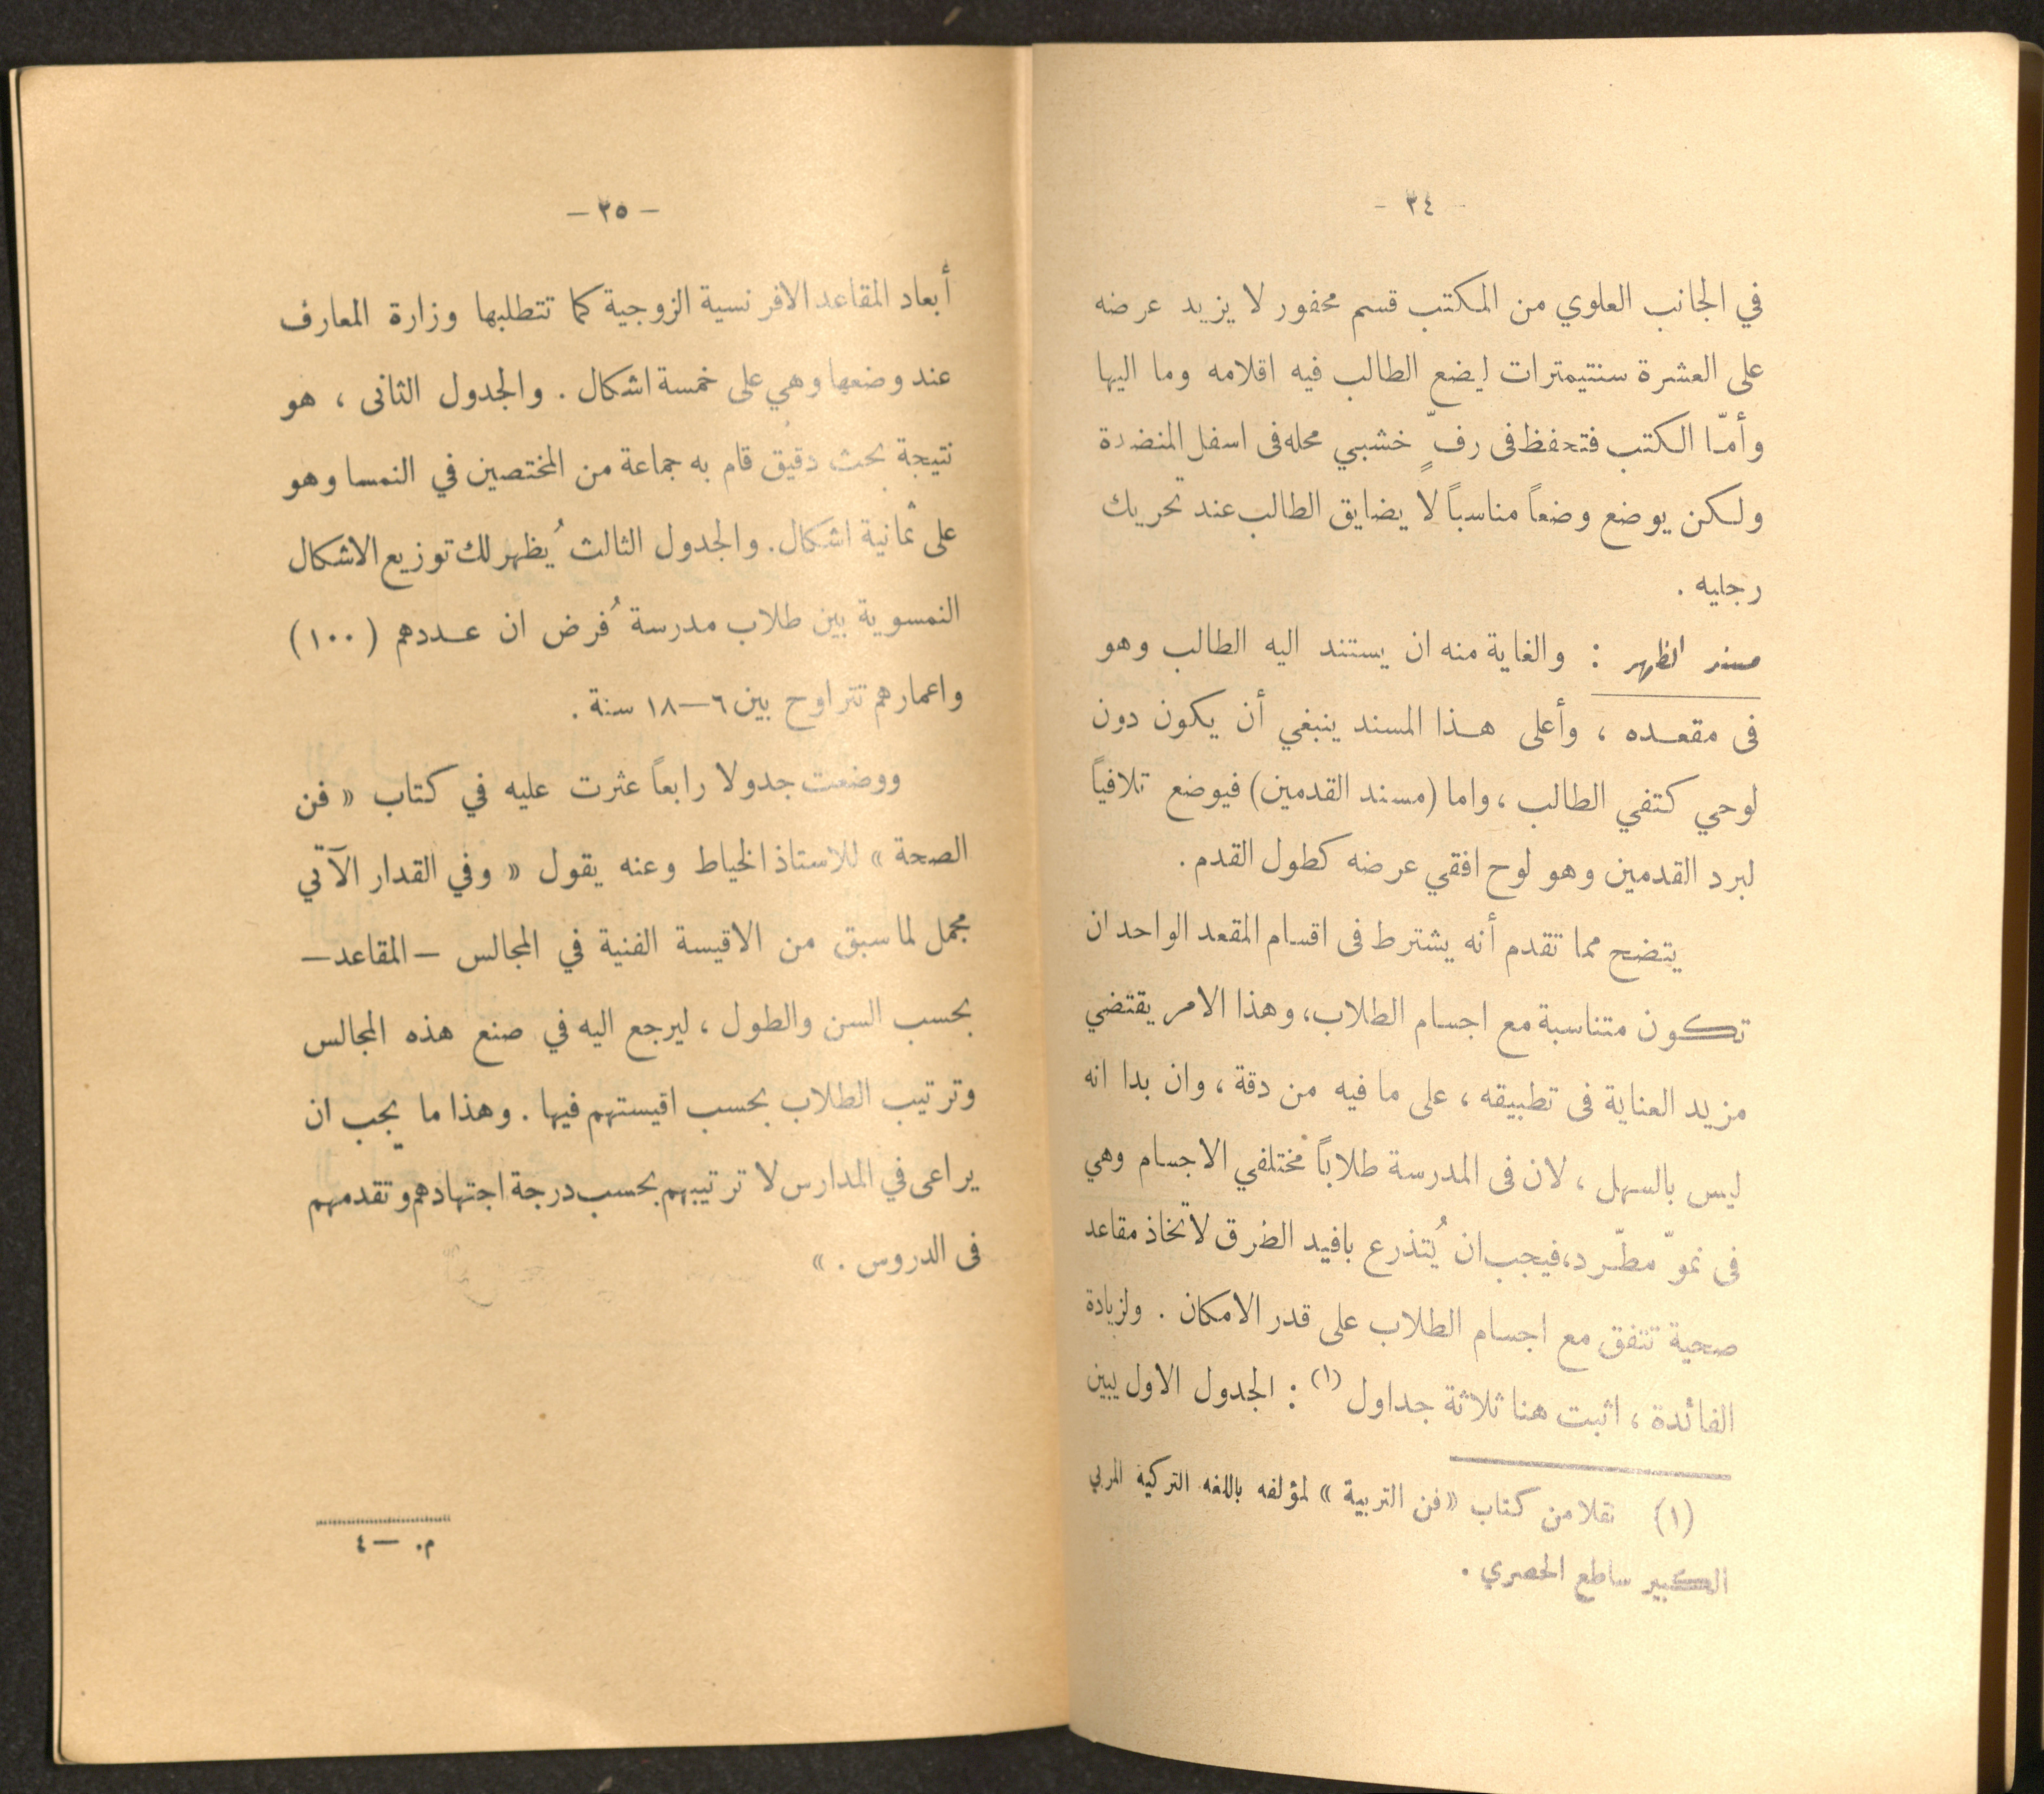 - ٣٤ -
في الجانب العلوي من المكتب قسم محفور لا يزيد عرضه
على العشرة سنتيمترات ليضع الطالب فيه اقلامه وما اليها
وأمّا الكتب فتحفظ فى رفٍّ خشبي محله فى اسفل المنضدة
ولكن يوضع وضعاً مناسباً لا يضايق الطالب عند تحريك
رجليه .
مسند الظهر : والغاية منه ان يستند اليه الطالب وهو
فى مقعده ، وأعلى هذا المسند ينبغي أن يكون دون
لوحي كتفي الطالب ، واما (مسند القدمين) فيوضع تلافياً
لبرد القدمين وهو لوح افقي عرضه كطول القدم .
يتضح مما تقدم أنه يشترط فى اقسام المقعد الواحد ان
تكون متناسبة مع اجسام الطلاب، وهذا الامر يقتضي
مزيد العناية فى تطبيقه ، على ما فيه من دقة ، وان بدا انه
ليس بالسهل ، لان فى المدرسة طلاباً مختلفي الاجسام وهي
فى نموّ مطّرد، فيجب ان يُتذرع بافيد الطرق لاتخاذ مقاعد
صحية تتفق مع اجسام الطلاب على قدر الامكان . ولزيادة
الفائدة ، اثبت هنا ثلاثة جداول (١) : الجدول الاول يبين
(١) نقلا من كتاب «فن التربية» لمؤلفه باللغه التركية المربي
الكبير ساطع الحصري .
- ٣٥ -
أبعاد المقاعد الافرنسية الزوجية كما تتطلبها وزارة المعارف
عند وضعها وهي على خمسة اشكال . والجدول الثانى ، هو
نتيجة بحث دقيق قام به جماعة من المختصين في النمسا وهو
على ثمانية اشكال. والجدول الثالث يُظهر لك توزيع الاشكال
النمسوية بين طلاب مدرسة فُرض ان عددهم (١٠٠)
واعمارهم تتراوح بين ٦—١٨ سنة .
ووضعت جدولا رابعاً عثرت عليه في كتاب « فن
الصحة » للاستاذ الخياط وعنه يقول « وفي القدار الآتي
مجمل لما سبق من الاقيسة الفنية في المجالس —المقاعد—
بحسب السن والطول ، ليرجع اليه في صنع هذه المجالس
وترتيب الطلاب بحسب اقيستهم فيها . وهذا ما يجب ان
يراعى في المدارس لا ترتيبهم بحسب درجة اجتهادهم وتقدمهم
فى الدروس . »
م. — ٤